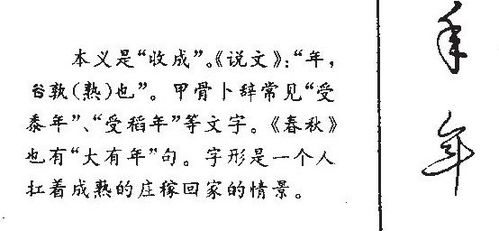 本义是“收成”。《说文》：“年，
谷孰(熟)也”。甲骨卜辞常见“受
黍年”、“受稻年”等文字。《春秋》
也有“大有年”句。字形是一个人
扛着成熟的庄稼回家的情景。
年
年